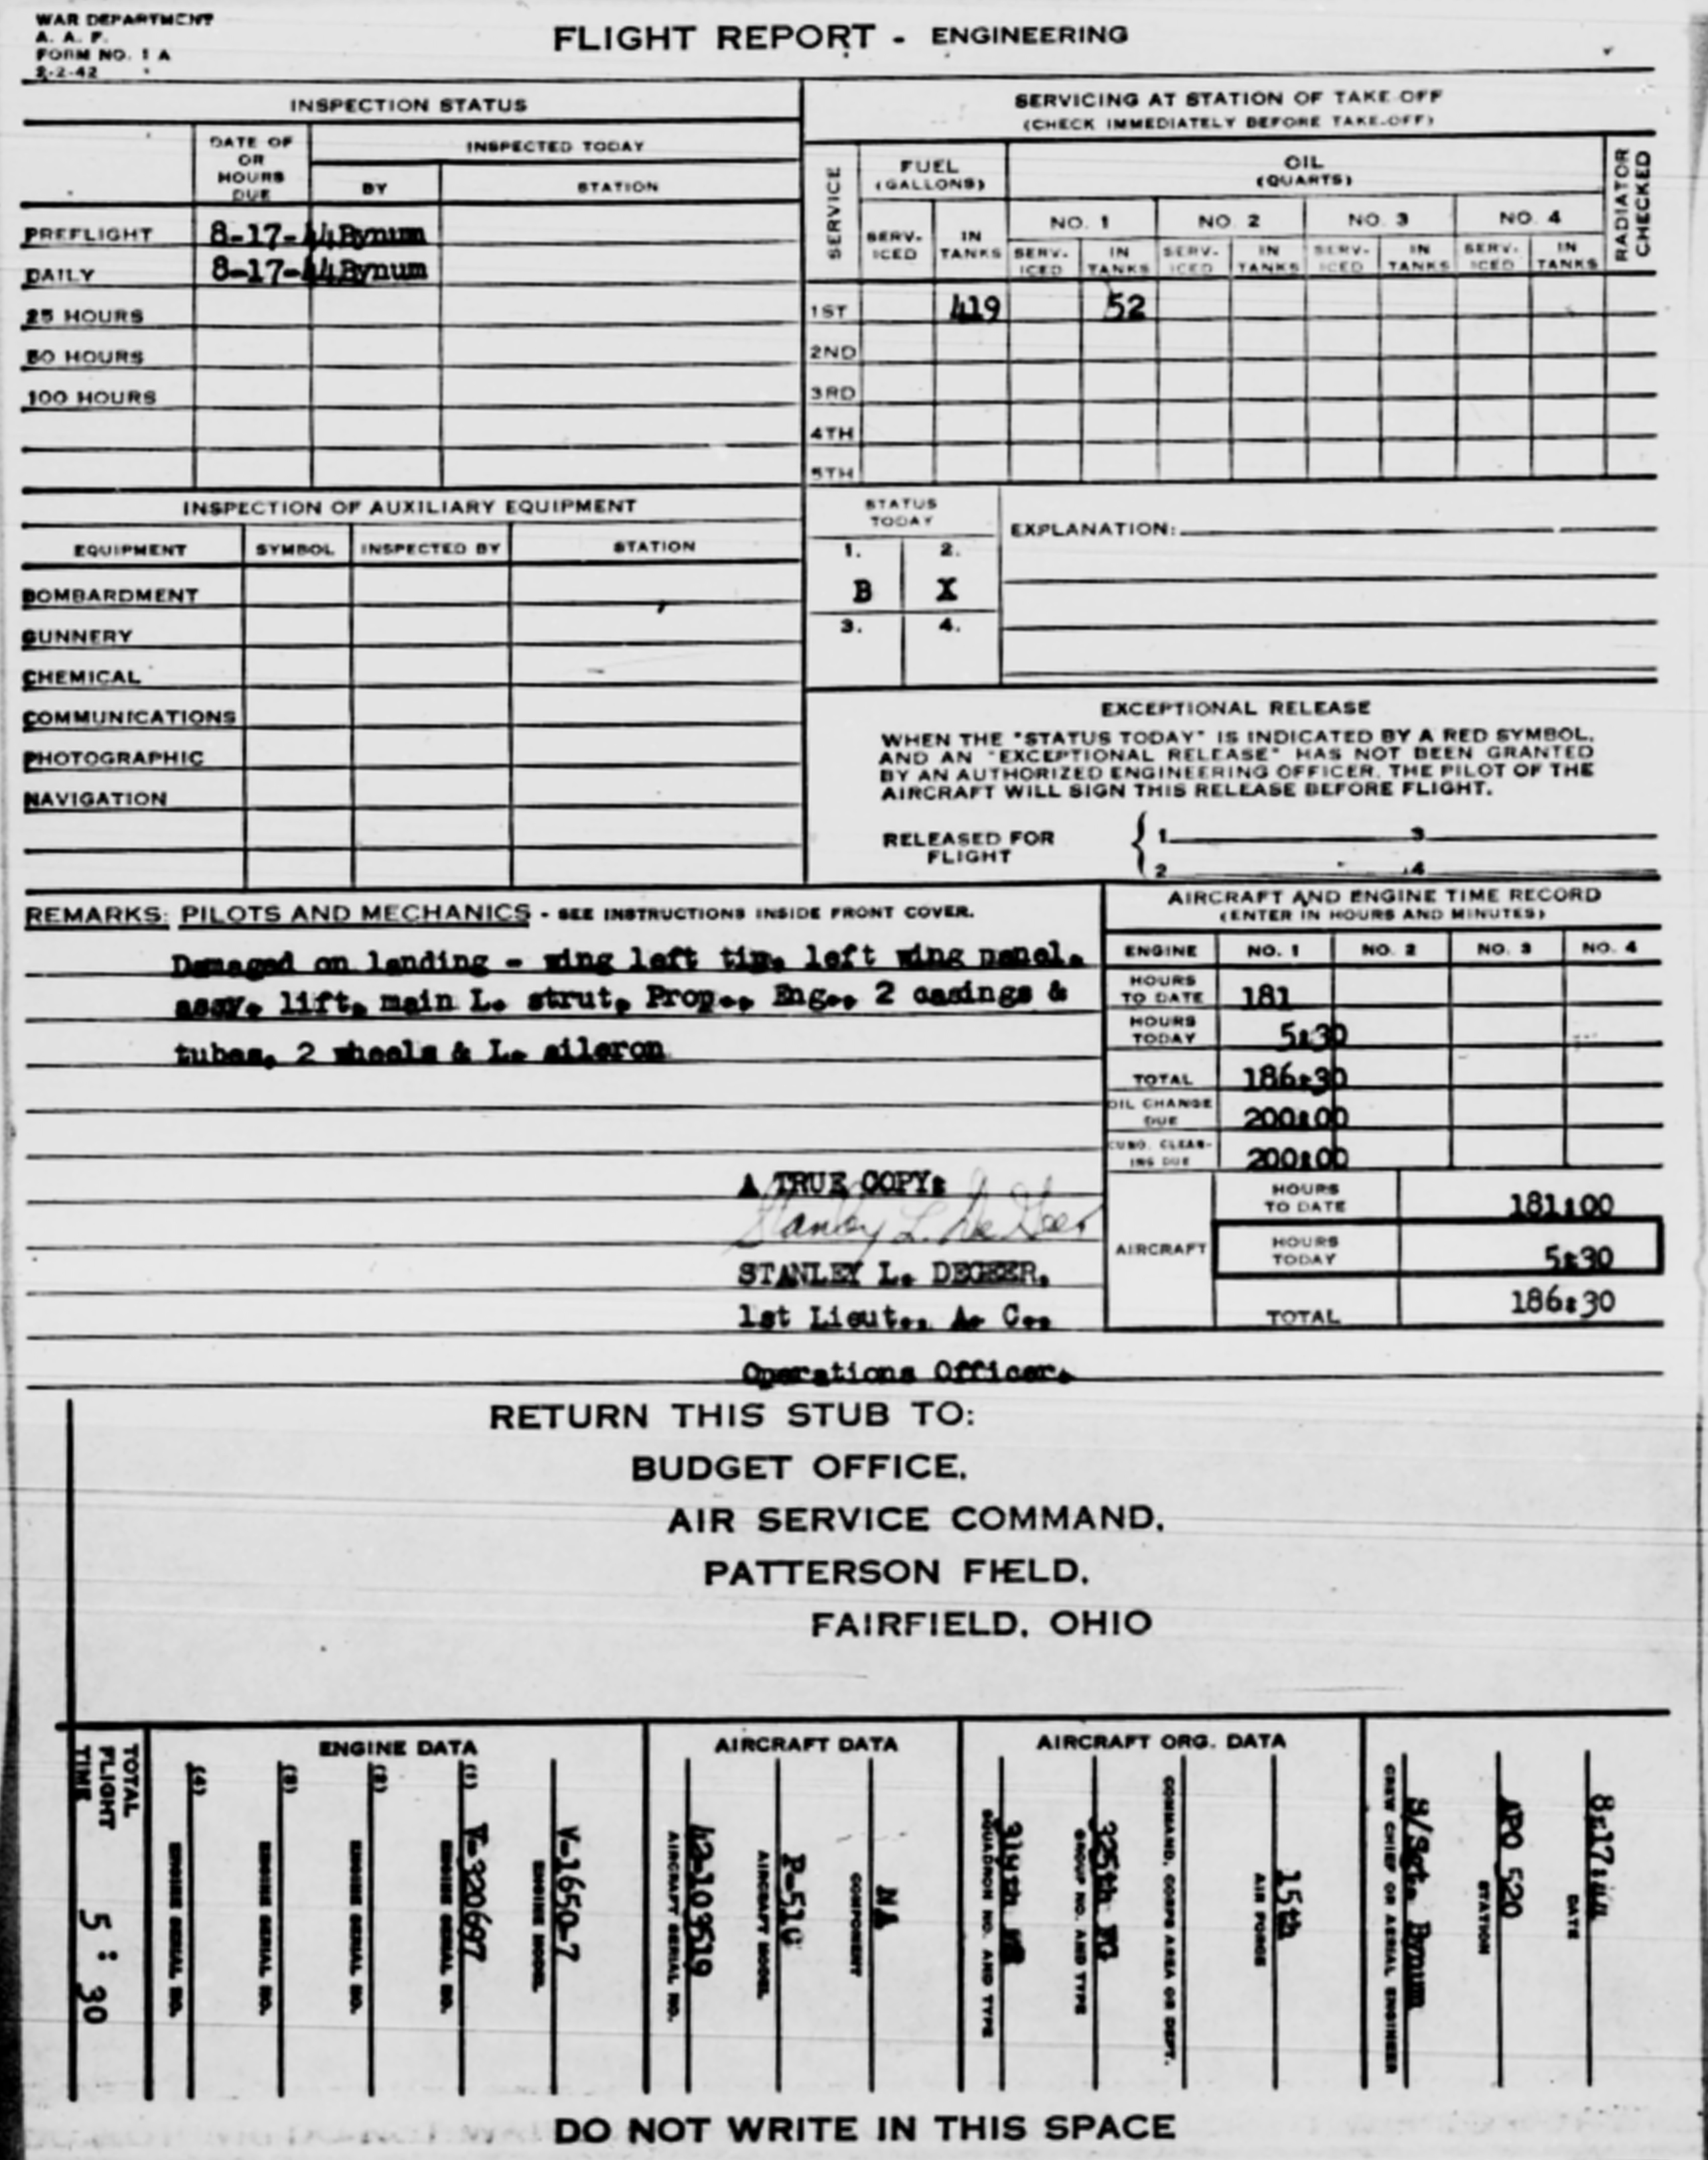 WAR DEPARTMENT
A. A. F.
FORM NO. 1 A
2-2-42
FLIGHT REPORT - ENGINEERING
INSPECTION STATUS
DATE OF OR HOURS DUE
INSPECTED TODAY
BY STATION
PREFLIGHT 8-17-44 Bynum
DAILY 8-17-44 Bynum
25 HOURS
50 HOURS
100 HOURS
SERVICING AT STATION OF TAKE-OFF
(CHECK IMMEDIATELY BEFORE TAKE-OFF)
SERVICE
FUEL (GALLONS)
OIL (QUARTS)
RADIATOR CHECKED
NO. 1 NO. 2 NO. 3 NO. 4
SERV-ICED IN TANKS SERV-ICED IN TANKS SERV-ICED IN TANKS SERV-ICED IN TANKS SERV-ICED IN TANKS
1ST 419 52
2ND
3RD
4TH
5TH
INSPECTION OF AUXILIARY EQUIPMENT
EQUIPMENT SYMBOL INSPECTED BY STATION
BOMBARDMENT
GUNNERY
CHEMICAL
COMMUNICATIONS
PHOTOGRAPHIC
NAVIGATION
STATUS TODAY
1. 2.
B X
3. 4.
EXPLANATION:
EXCEPTIONAL RELEASE
WHEN THE "STATUS TODAY" IS INDICATED BY A RED SYMBOL,
AND AN "EXCEPTIONAL RELEASE" HAS NOT BEEN GRANTED
BY AN AUTHORIZED ENGINEERING OFFICER, THE PILOT OF THE
AIRCRAFT WILL SIGN THIS RELEASE BEFORE FLIGHT.
RELEASED FOR FLIGHT
1 3
2 4
REMARKS: PILOTS AND MECHANICS - SEE INSTRUCTIONS INSIDE FRONT COVER.
Damaged on landing - wing left tip, left wing panel,
assy. lift, main L. strut, Prop., Eng., 2 casings &
tubes, 2 wheels & L. aileron
A TRUE COPY:
Stanley L. DeGeer
STANLEY L. DEGEER,
1st Lieut., A. C.,
Operations Officer.
AIRCRAFT AND ENGINE TIME RECORD
(ENTER IN HOURS AND MINUTES)
ENGINE NO. 1 NO. 2 NO. 3 NO. 4
HOURS TO DATE 181
HOURS TODAY 5:30
TOTAL 186:30
OIL CHANGE DUE 200:00
CUNO. CLEAN-ING DUE 200:00
AIRCRAFT
HOURS TO DATE 181:00
HOURS TODAY 5:30
TOTAL 186:30
RETURN THIS STUB TO:
BUDGET OFFICE,
AIR SERVICE COMMAND,
PATTERSON FIELD,
FAIRFIELD, OHIO
TOTAL FLIGHT TIME 5 : 30
ENGINE DATA
(4) ENGINE SERIAL NO.
(3) ENGINE SERIAL NO.
(2) ENGINE SERIAL NO.
(1) V-320697 ENGINE SERIAL NO.
V-1650-7 ENGINE MODEL
AIRCRAFT DATA
42-103519 AIRCRAFT SERIAL NO.
P-51C AIRCRAFT MODEL
NA COMPONENT
AIRCRAFT ORG. DATA
SQUADRON NO. AND TYPE
325th GROUP NO. AND TYPE
COMMAND, CORPS AREA OR DEPT.
15th AIR FORCE
Bynum CREW CHIEF OR AERIAL ENGINEER
APO 520 STATION
8:17:44 DATE
DO NOT WRITE IN THIS SPACE